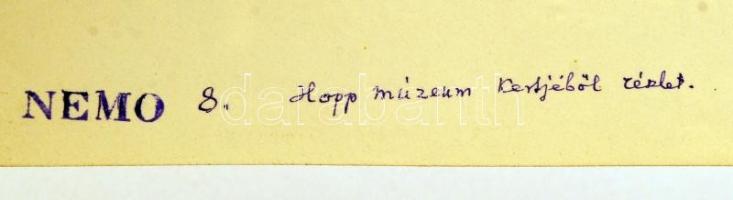 NEMO 8. Hopp múzeum kertjéből részlet.
darabanth